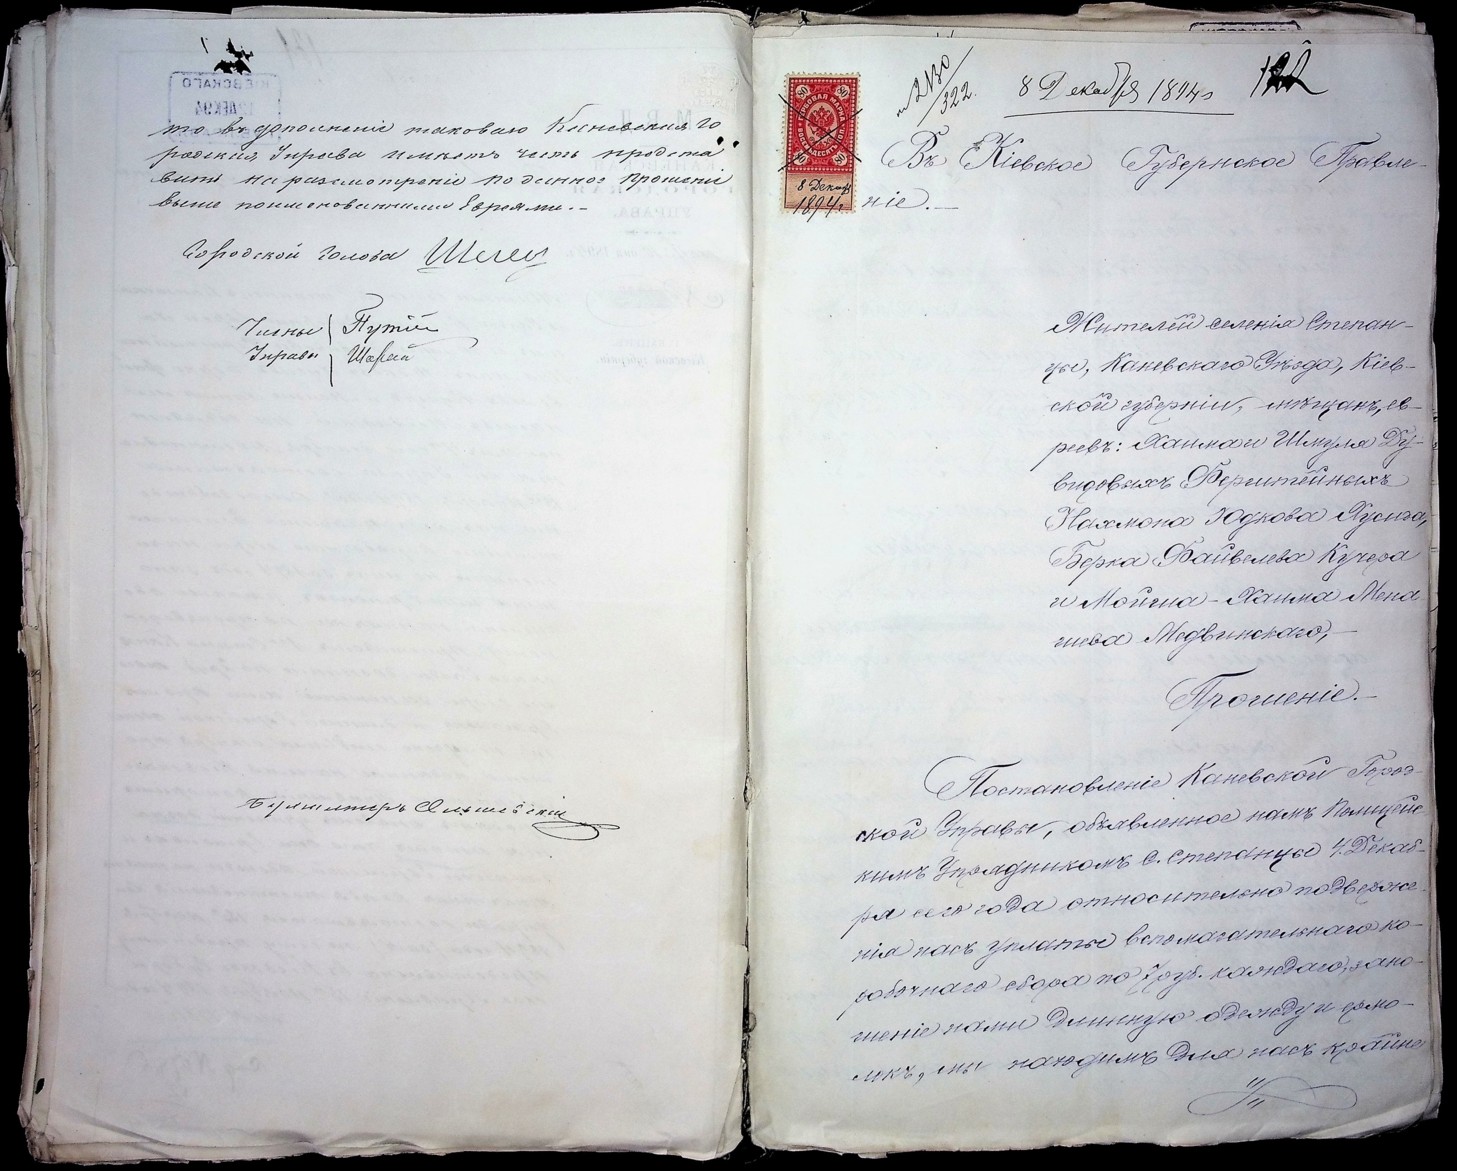 то въ дополненіе таковаго Каневская Го
родская Управа имѣетъ честь предста
вить на разсмотрѣніе поданное прошеніе
выше поименованными Евреями.-
Городской Голова
Члены
Управы
Шарай
Бухгалтеръ
№ 2130/322.
8 Декабря 1894 г
122
80 80
ГЕРБОВАЯ МАРКА
ВОСЕМЬДЕСЯТЪ КОП.
80 80
8 Декаб
1894 г.
Въ Кіевское Губернское Правле-
ніе.-
Жителей селенія Степан-
цы, Каневскаго Уѣзда, Кіев-
ской губерніи, мѣщанъ, ев-
реевъ: Хаима и Шмуля Ду-
видовыхъ Бернштейныхъ
Нахмона Юдкова Хусига,
Берка Файвелева Кучера
и Мойша-Хаима Мена
шева Медвинскаго,-
Прошеніе.-
Постановленіе Каневской Город-
ской Управы, объявленное намъ Полицейс
кимъ Урядникомъ с. Степанцы 4 Декаб-
ря сего года относительно подверже-
нія насъ уплаты вспомагательнаго ко-
робочнаго сбора по 7 руб. каждаго, за но-
шеніе нами длинную одежду и ермо-
лкъ, мы находимъ для насъ крайне